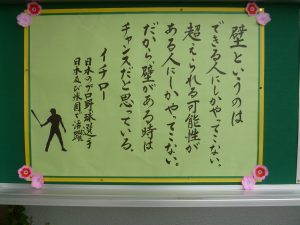 壁というのは
できる人にしかやってこない。
超えられる可能性が
ある人にしかやってこない。
だから壁がある時は
チャンスだと思っている。
イチロー
日本のプロ野球選手
日本及び米国で活躍